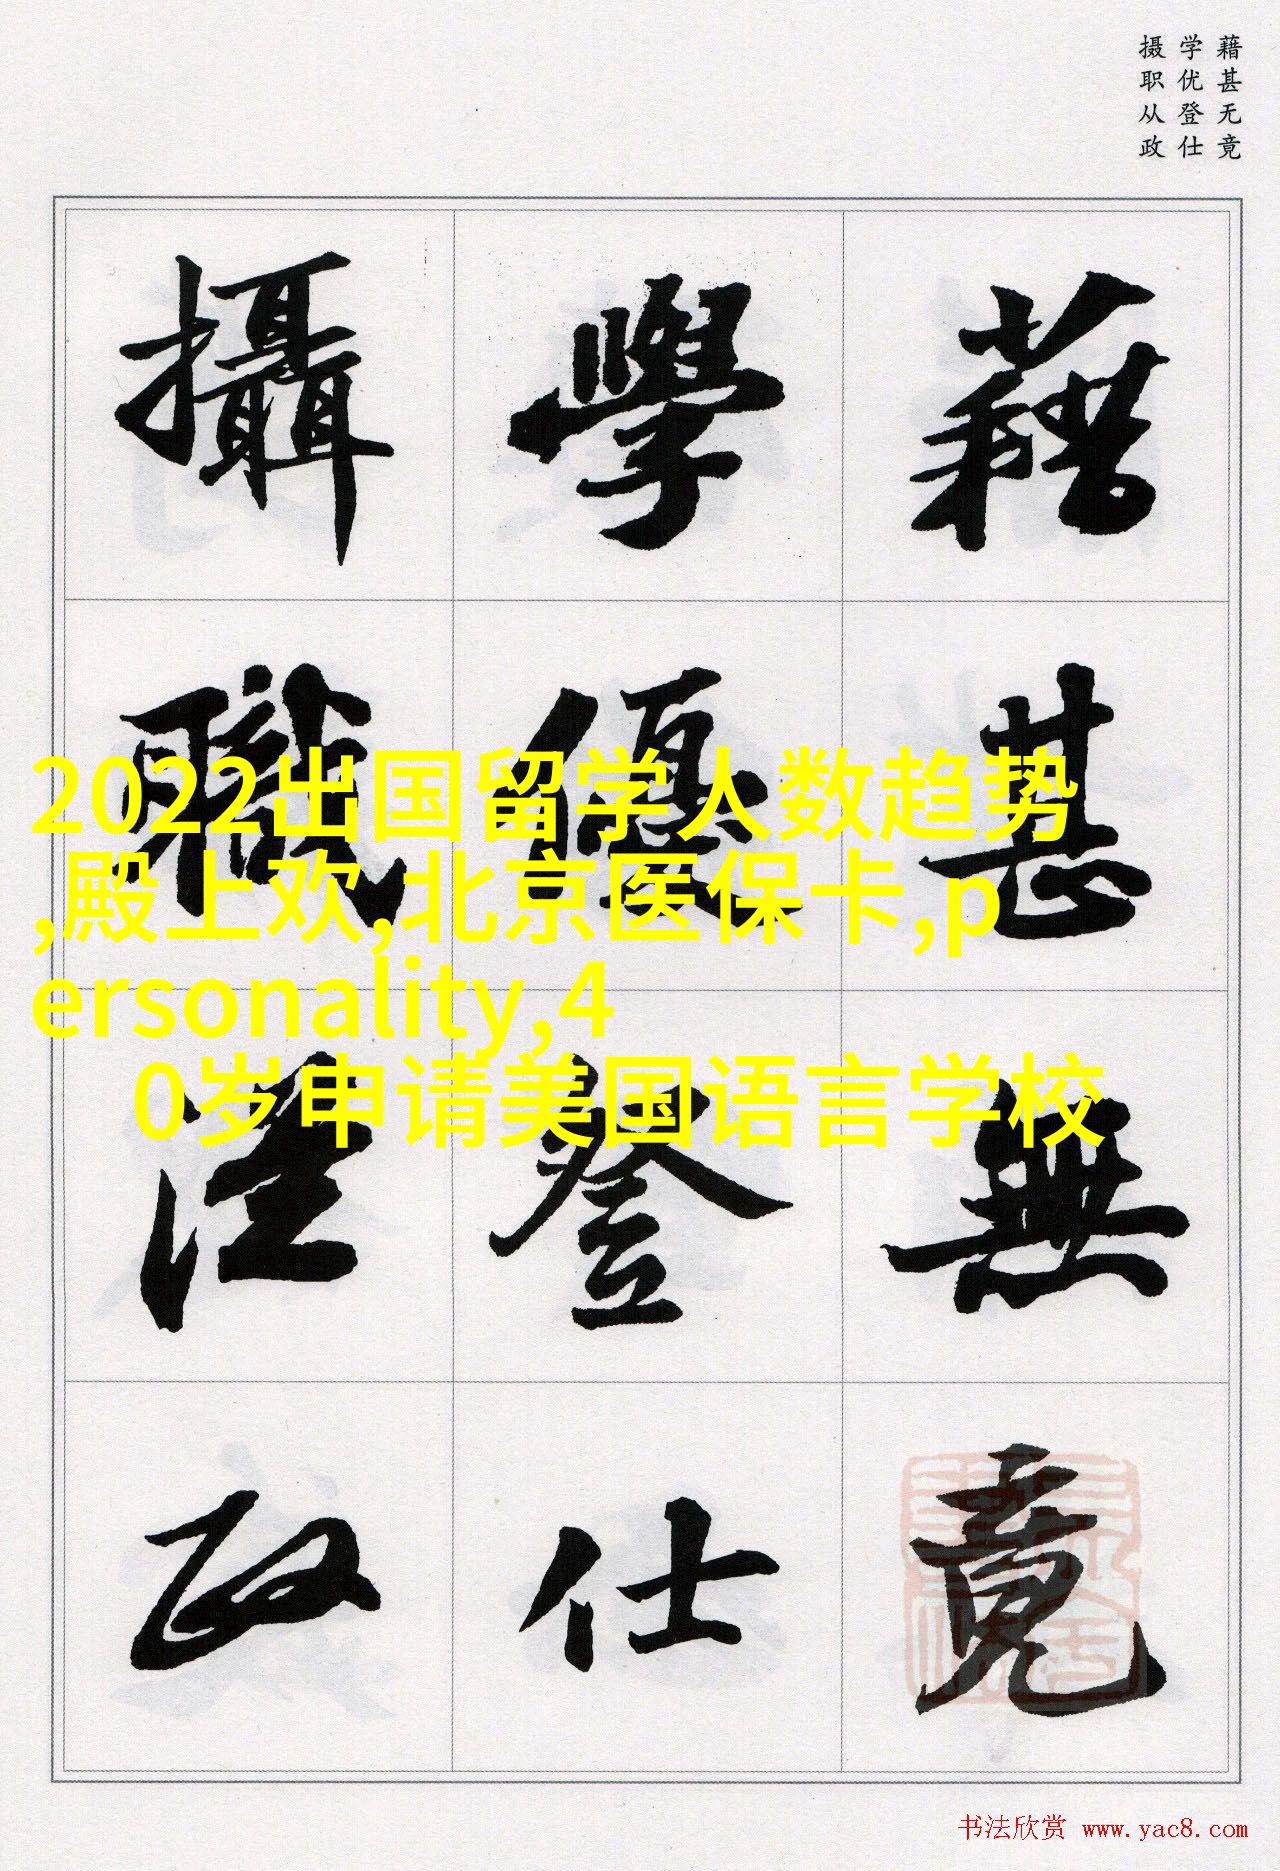 藉甚无竟
学优登仕
摄职从政
藉甚無竟
學優登仕
攝職從政
2022出国留学人数趋势
,殿上欢,北京医保卡,p
ersonality,4
0岁申请美国语言学校
书法欣赏 www.yac8.com